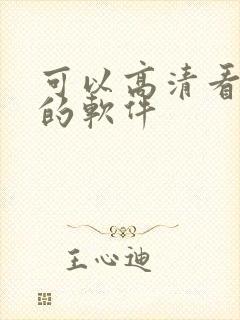 可以高清看
的軟件
王心迪